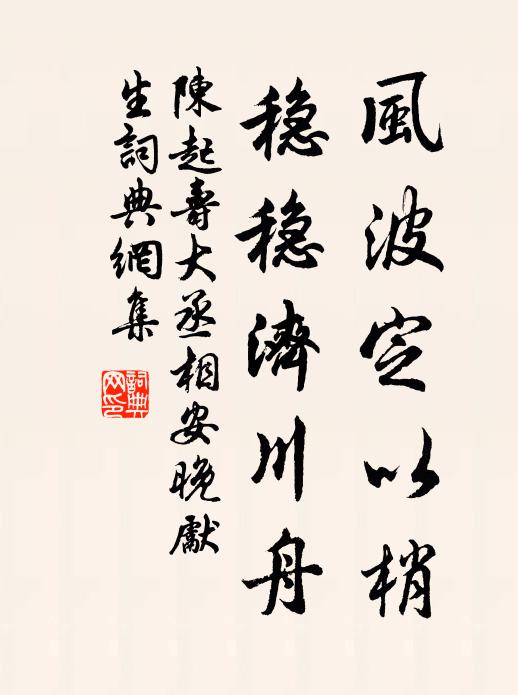 風波定以梢
穏穏濟川舟
陳起壽大丞相安晚獻
生詞典網集
詞典
网印